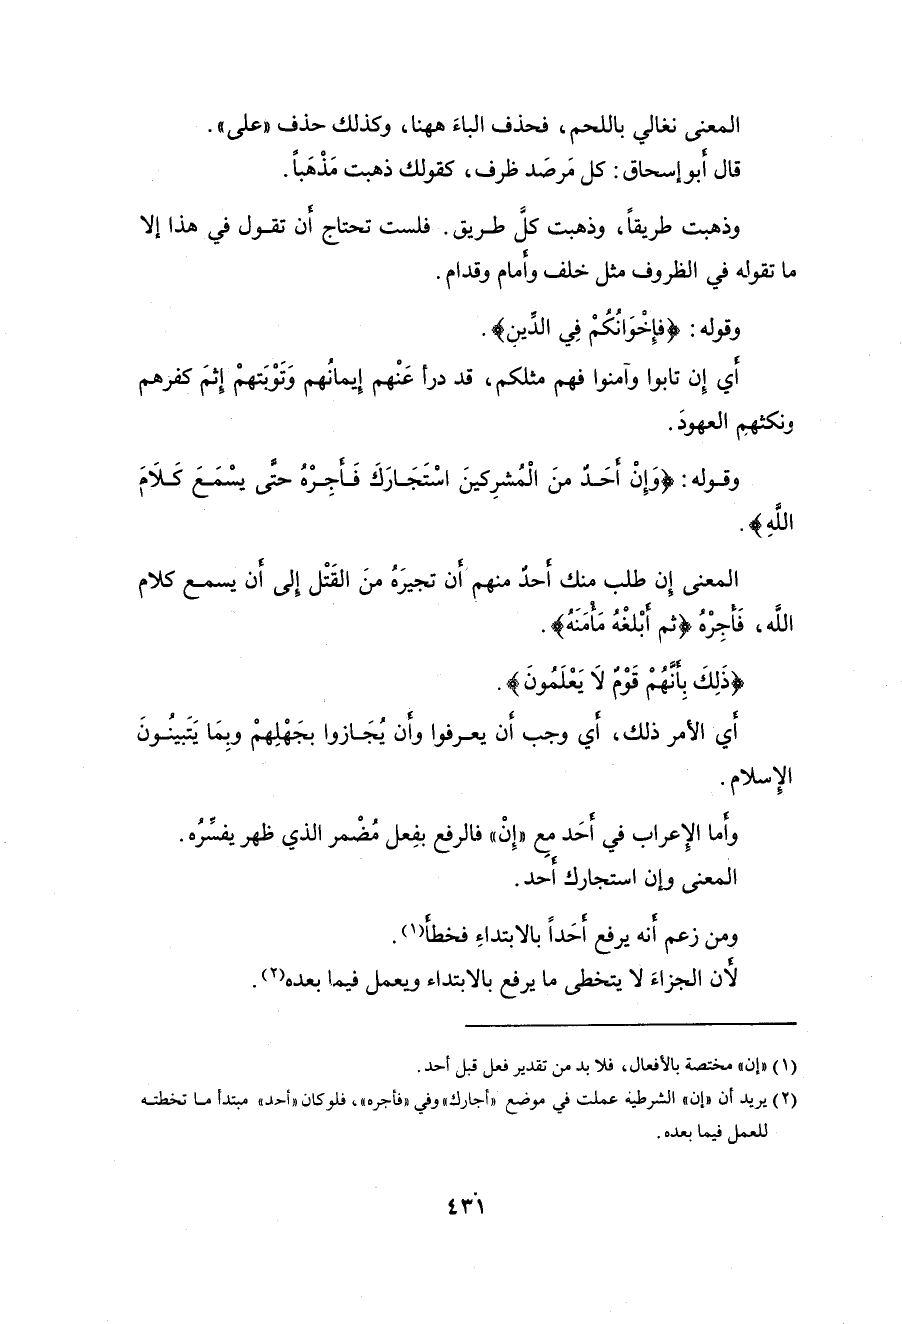 المعنى نغالي باللحم، فحذف الباءَ ههنا، وكذلك حذف «على».
قال أَبو إسحاق: كل مَرصَد ظرف، كقولك ذهبت مَذْهَباً.
وذهبت طريقاً، وذهبت كلَّ طريق. فلست تحتاج أَن تقول في هذا إلا
ما تقوله في الظروف مثل خلف وأَمام وقدام.
وقوله: ﴿فإِخْوَانُكُمْ فِي الدِّينِ﴾.
أَي إِن تابوا وآمنوا فهم مثلكم، قد درأ عَنْهم إِيمانُهم وَتَوْبَتهمْ إِثمَ كفرهم
ونكثهمِ العهودَ.
وقوله: ﴿وَإِنْ أَحَدٌ منَ الْمُشرِكينَ اسْتَجَارَكَ فَأَجِرْهُ حتَّى يسْمَعَ كَلَامَ
اللَّهِ﴾.
المعنى إِن طلب منك أَحدٌ منهم أَن تجيرَهُ منَ القَتْل إِلى أَن يسمع كلام
اللَّه، فَأَجِرْهُ ﴿ثم أَبْلغْهُ مَأْمَنَهُ﴾.
﴿ذَلِكَ بِأَنَّهُمْ قَوْمٌ لَا يَعْلَمُونَ﴾.
أَي الأمر ذلك، أَي وجب أَن يعرفوا وأَن يُجَازوا بجَهْلِهمْ وبِمَا يَتَبينُونَ
الإِسلام.
وأَما الإِعراب في أَحَد مع «إِنْ» فالرفع بفِعل مُضْمر الذي ظهر يفسِّرُه.
المعنى وإن استجارك أَحد.
ومن زعم أَنه يرفع أَحَداً بالابتداءِ فخطأَ(١).
لأَن الجزاءَ لا يتخطى ما يرفع بالابتداء ويعمل فيما بعده(٢).
(١) «إن» مختصة بالأفعال، فلا بد من تقدير فعل قبل أحد.
(٢) يريد أن «إن» الشرطية عملت في موضع «أجارك» وفي «فأجره»، فلو كان «أحد» مبتدأ ما تخطته
للعمل فيما بعده.
٤٣١